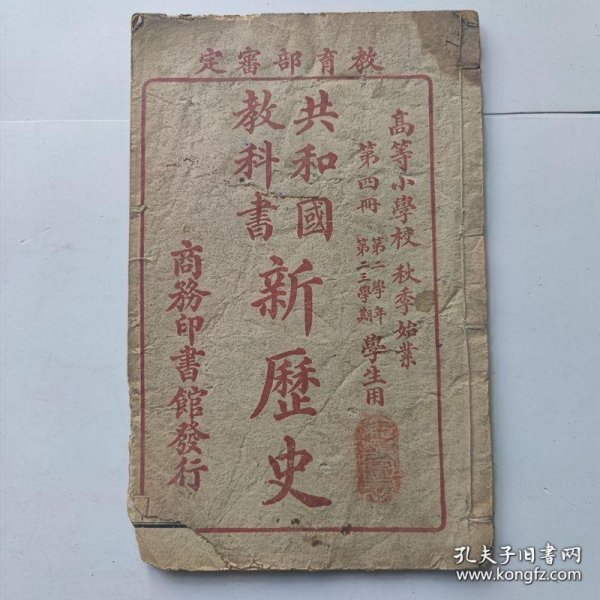 教育部審定
高等小學校 秋季始業
第四冊 第二學年 第二三學期 學生用
共和國
教科書
新歷史
商務印書館發行
孔夫子旧书网
www.kongfz.com